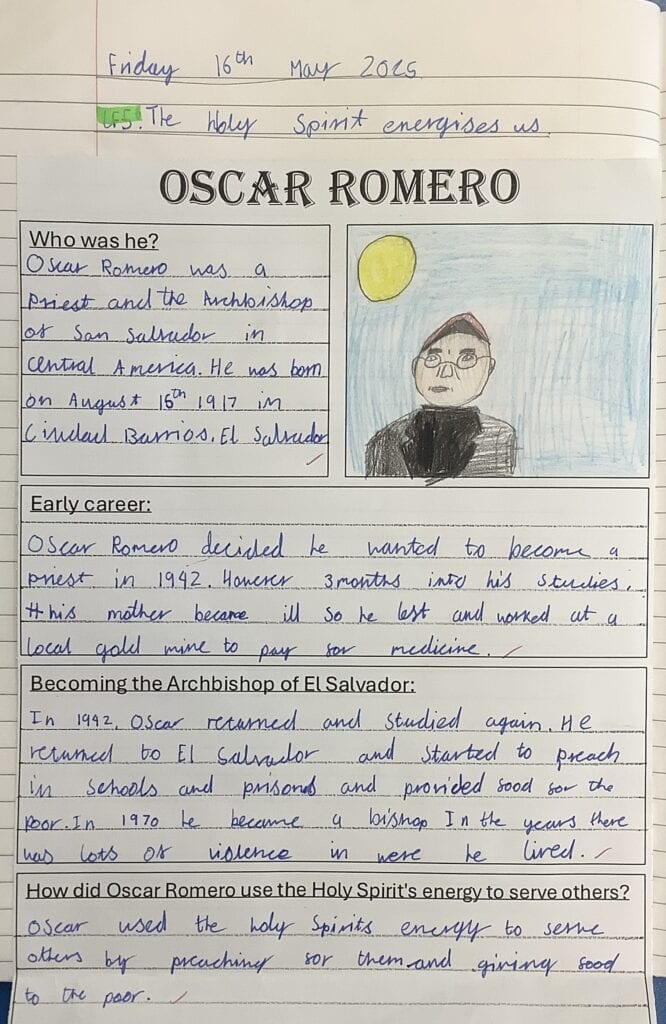 Friday 16th May 2025
LF5. The holy Spirit energises us.
OSCAR ROMERO
Who was he?
Oscar Romero was a
priest and the Archbishop
of San Salvador in
Central America. He was born
on August 16th 1917 in
Ciudad Barrios, El Salvador
Early career:
Oscar Romero decided he wanted to become a
priest in 1942. However 3 months into his studies,
his mother became ill so he left and worked at a
local gold mine to pay for medicine.
Becoming the Archbishop of El Salvador:
In 1942, Oscar returned and studied again. He
returned to El Salvador and started to preach
in schools and prisons and provided food for the
poor. In 1970 he became a bishop In the years there
was lots of violence in were he lived.
How did Oscar Romero use the Holy Spirit's energy to serve others?
Oscar used the holy Spirits energy to serve
others by preaching for them and giving food
to the poor.